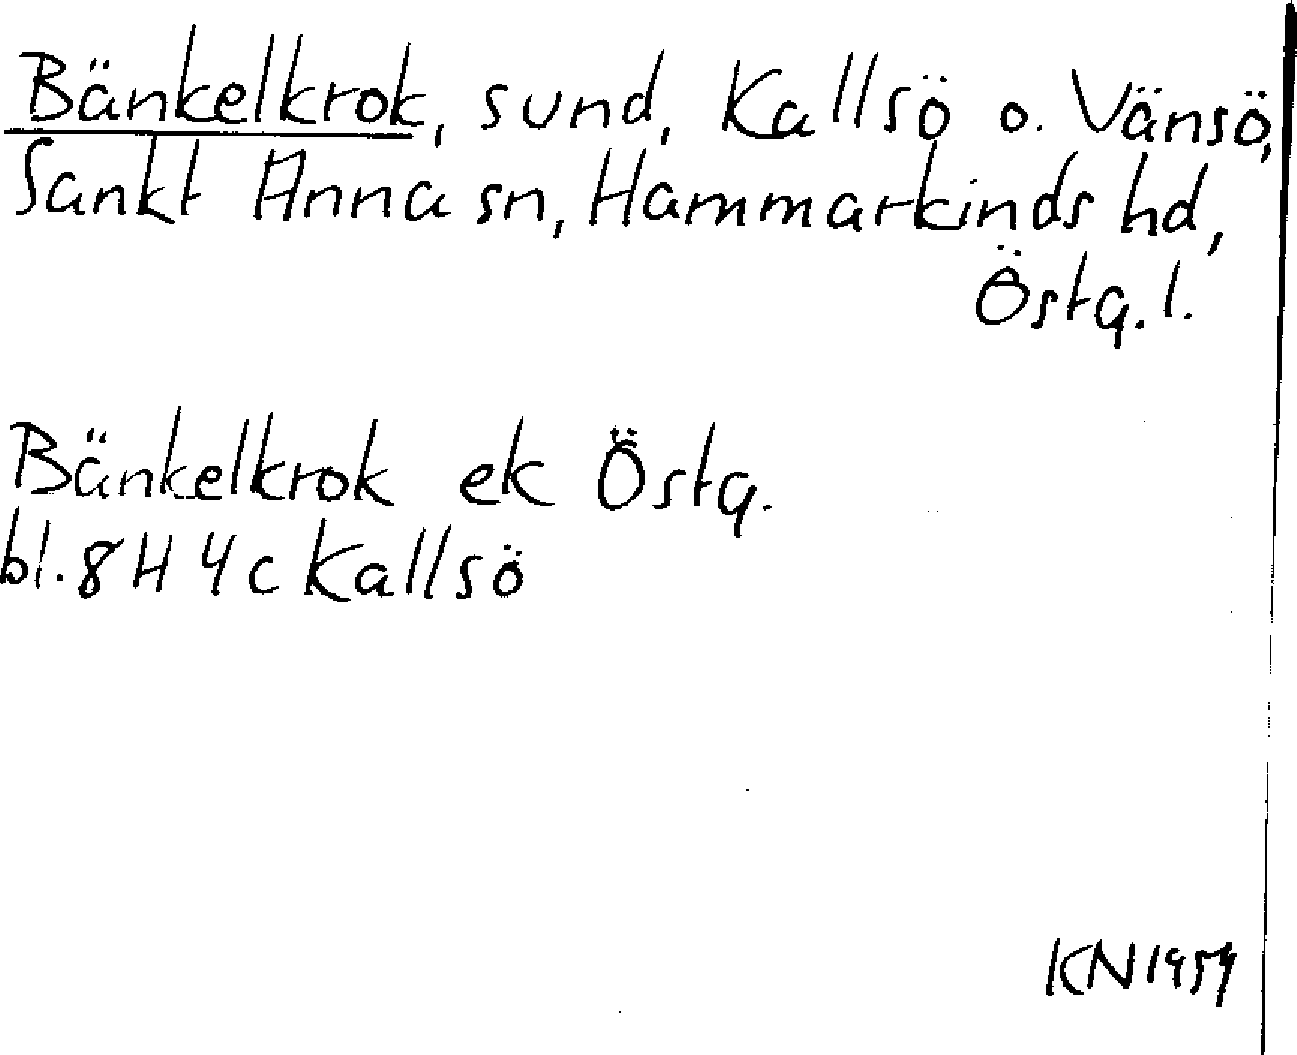 Bänkelkrok, sund, Kallsö o. Vänsö,
Sankt Anna sn, Hammarkinds hd,
Östg. l.
Bänkelkrok ek Östg.
bl. 8H 4c Kallsö
KN 1959